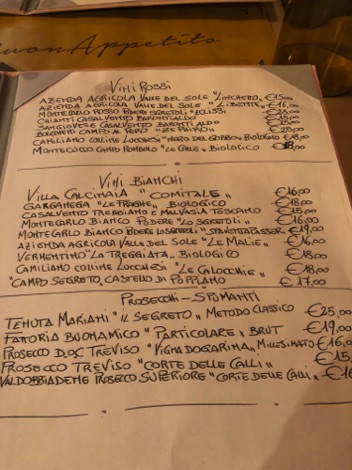 Buon Appetito
VINI ROSSI
AZIENDA AGRICOLA VALLE DEL SOLE "LINCHETO" €15,00
AZIENDA AGRICOLA VALLE DEL SOLE "LIBENTE" €16,00
MONTECARLO ROSSO PODERE SGRETOLI "ECLISSI"
CHIANTI CASALVENTO BARONTI ALDO
SANGIOVESE CASALVENTO BARONTI ALDO
BOLGHERI CAMPO AL PERO "ZEPHIRO" €25,00
CAMILIANO COLLINE LUCCHESI "NERO DEL GOBBO" BIOLOGICO €18,00
MONTECUCCO CAMPO ROMBERO "LE CALLE" BIOLOGICO €18,00
VINI BIANCHI
VILLA CALCINAIA "COMITALE" €16,00
GARGANEGA "LE FRAGHE" BIOLOGICO €18,00
CASALVENTO TREBBIANO E MALVASIA TOSCANO €15,00
MONTECARLO BIANCO PODERE "LO SGRETOLI" €16,00
MONTECARLO BIANCO PODERE LO SGRETOLI "STAVENTAPASSER" €19,00
AZIENDA AGRICOLA VALLE DEL SOLE "LE MALIE" €16,00
VERMENTINO "LA TREGGIATA" BIOLOGICO €18,00
CAMILIANO COLLINE LUCCHESI "LE CALOCCHIE" €18,00
"CAMPO SEGRETO" CASTELLO DI POPPIANO € 17,00
PROSECCHI - SPUMANTI
TENUTA MARIANI "IL SEGRETO" METODO CLASSICO €25,00
FATTORIA BUONAMICO "PARTICOLARE" BRUT €19,00
PROSECCO D.O.C TREVISO "VIGNA DOGARINA" MILLESIMATO €16,0
PROSECCO TREVISO "CORTE DELLE CALLI" €15,
VALDOBBIADENE PROSECCO SUPERIORE "CORTE DELLE CALLI" €16